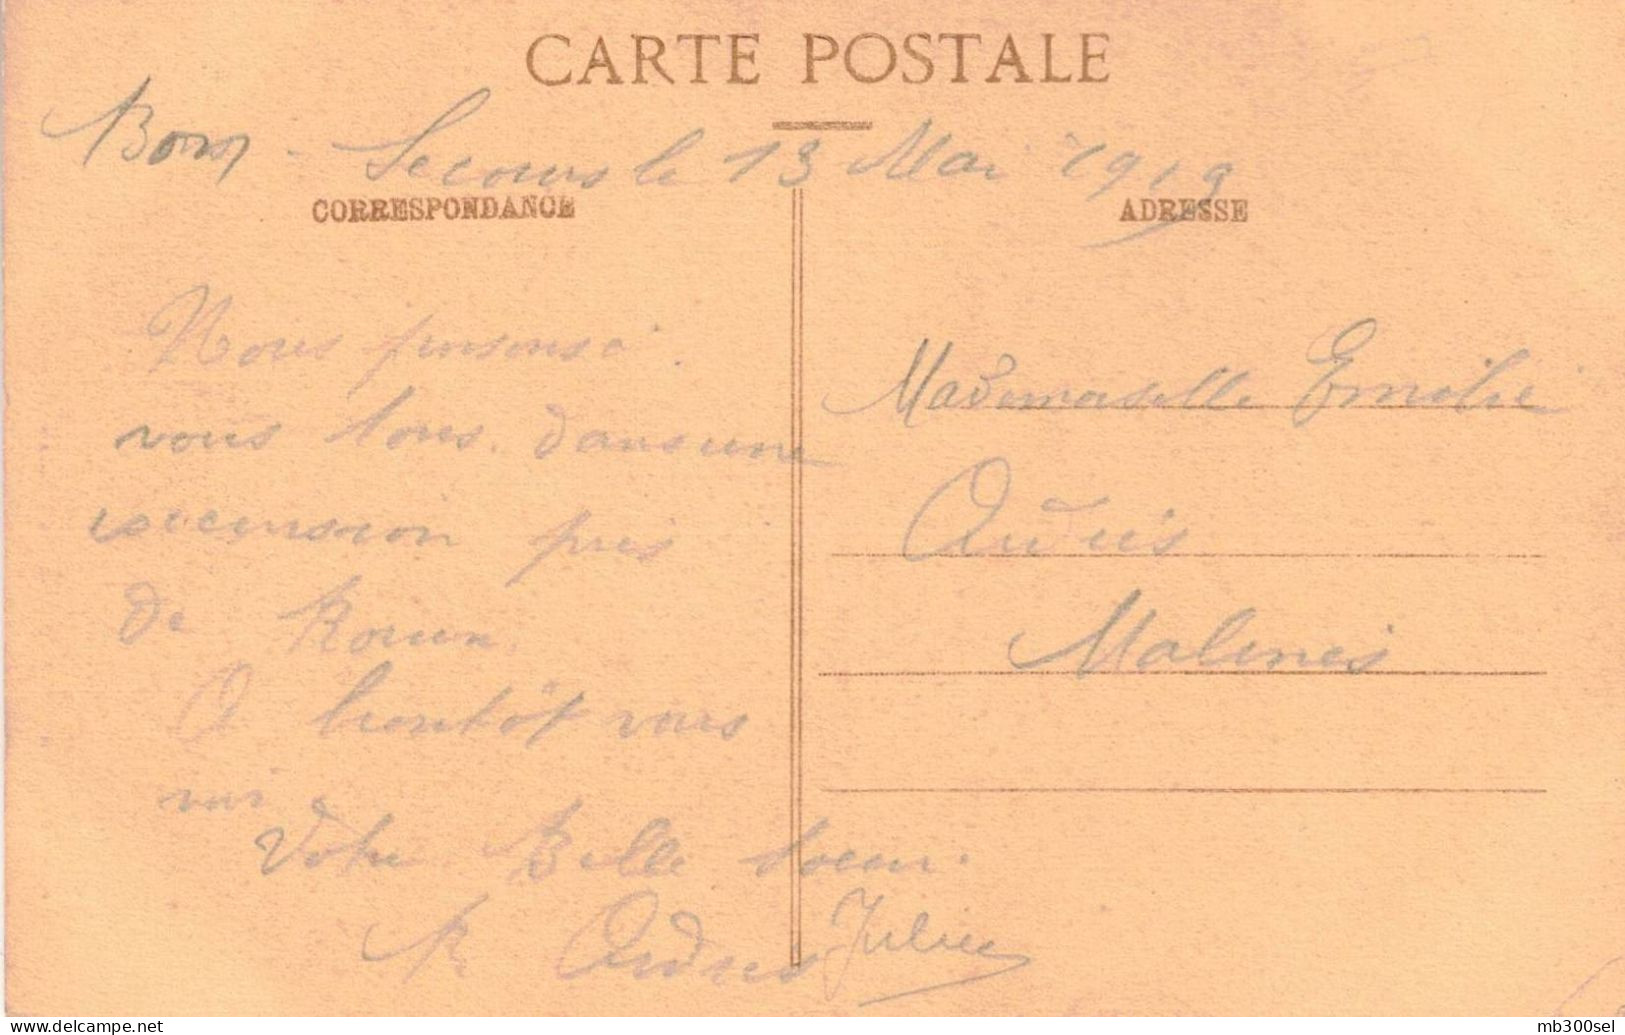 CARTE POSTALE
Bon - Secours le 13 Mai 1919
CORRESPONDANCE
ADRESSE
Nous pensons à
vous tous. dans une
excursion près
de Rouen.
A bientôt vous
voir
Votre Belle Soeur.
Julien
Mademoiselle Emilie
Malines
mb300sel